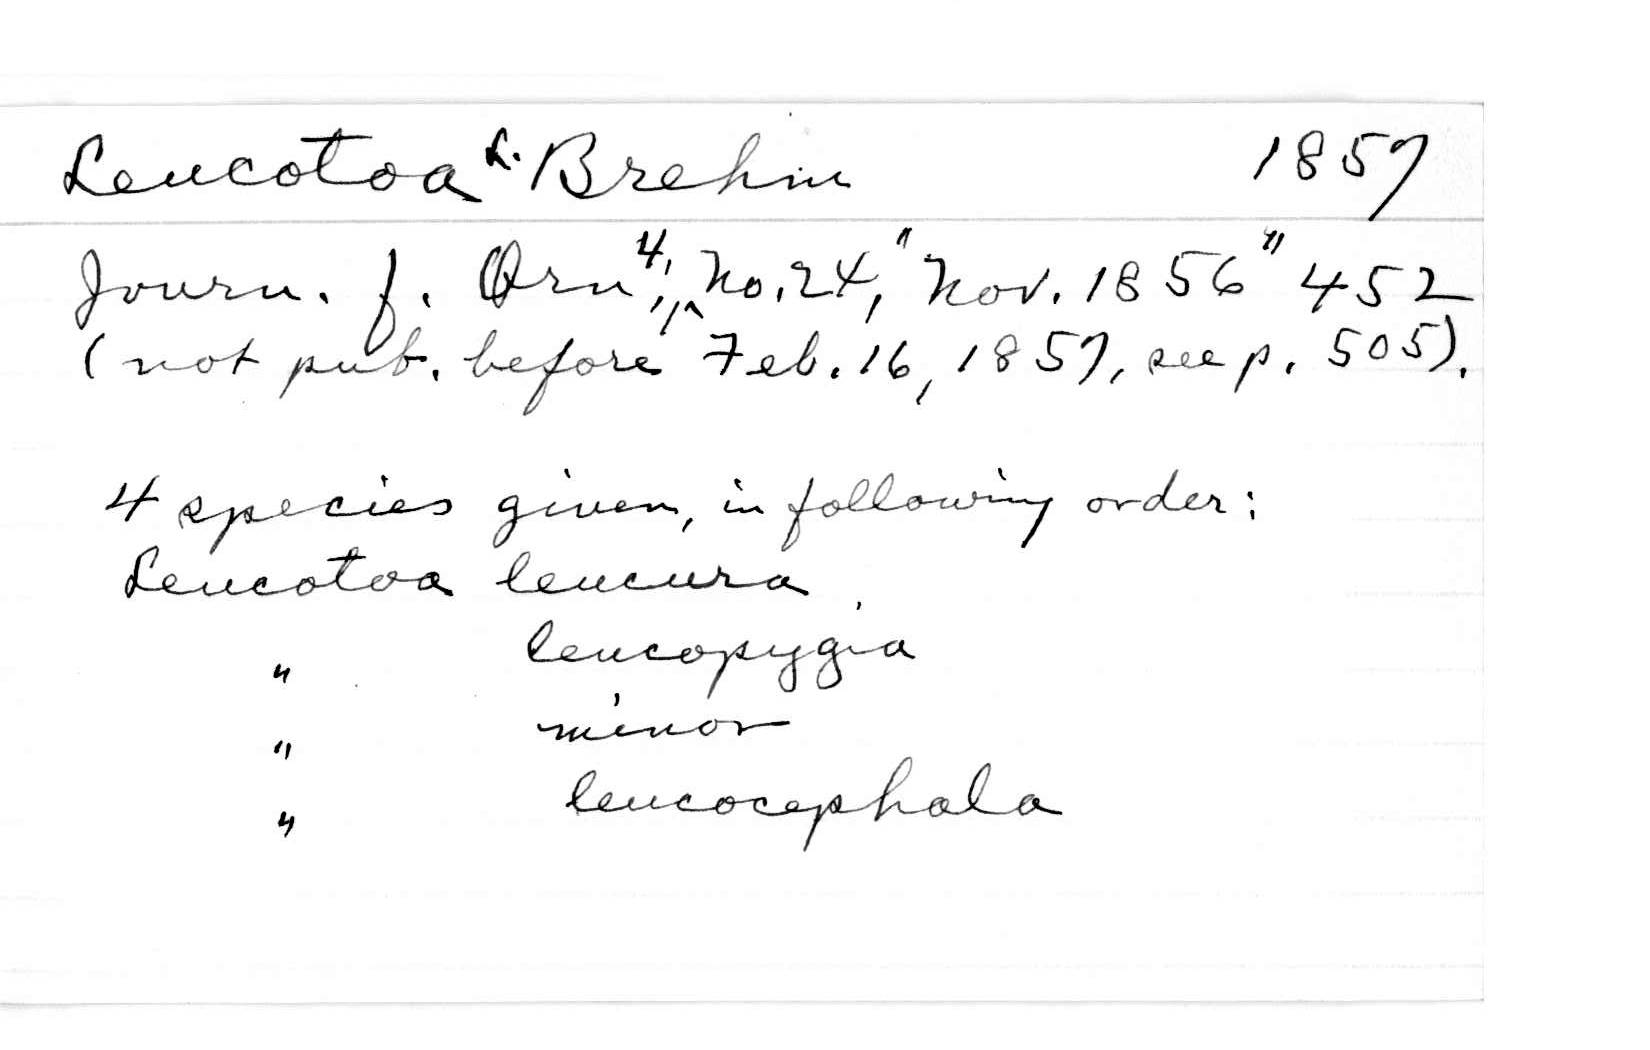 Leucotoa L. Brehm 1857
Journ. f. Orn., 4, No. 24, "Nov. 1856" 452
(not pub. before Feb. 16, 1857, see p. 505).
4 species given, in following order:
Leucotoa leucura
" leucopygia
" minor
" leucocephala